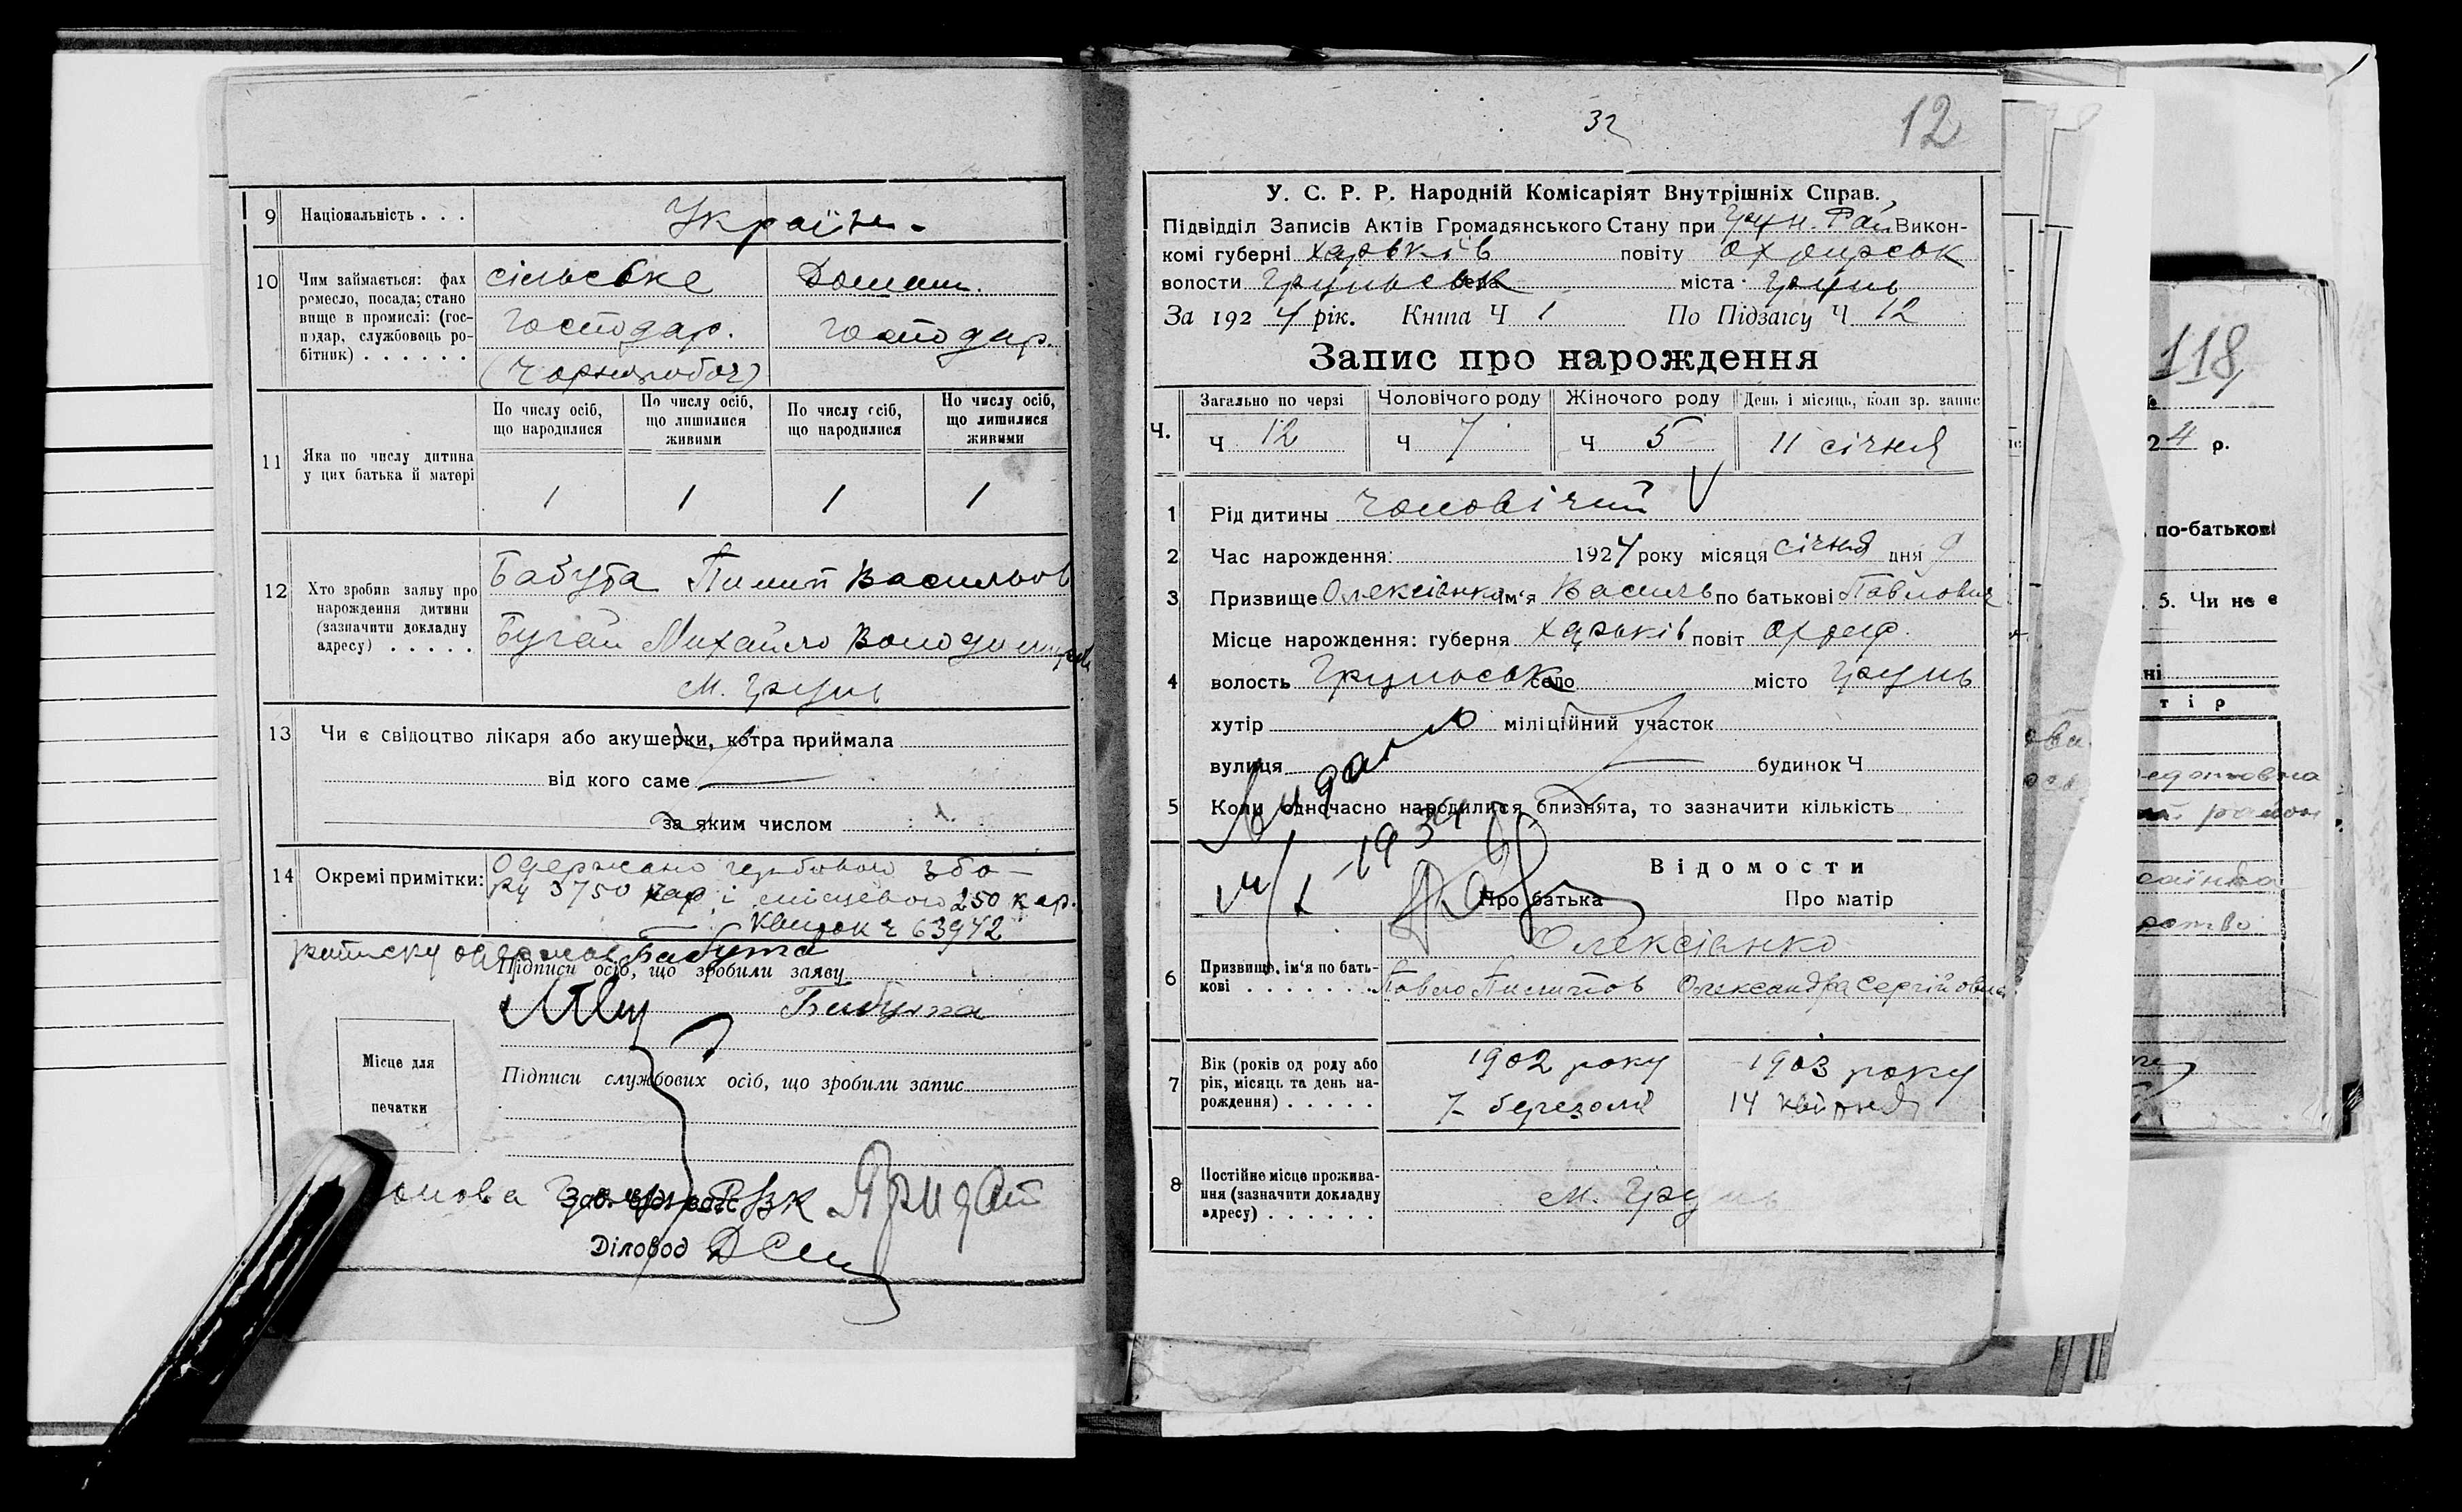 9 Національність . . . Україн.
10 Чим займається: фах ремесло, посада; становище в промислі: (господар, службовець робітник) . . . . . .
сільське Домашн.
господар. господар.
(Чорнороб)
11 Яка по числу дитина у цих батька й матері
По числу осіб, що народилися
По числу осіб, що лишилися живими
По числу осіб, що народилися
По числу осіб, що лишилися живими
1 1 1 1
12 Хто зробив заяву про нарождення дитини (зазначити докладну адресу) . . . . .
Бабута Пилип Васильов
Бугай Михайло Володимиров
м. Грунь
13 Чи є свідоцтво лікаря або акушерки, котра приймала
від кого саме
за яким числом
14 Окремі примітки: Одержано гербового збо-
ру 3750 кар і місцевого 250 кар.
Квиток ч 63942
одержав Бабута
Підписи осіб, що зробили заяву
Бабута
Місце для печатки
Підписи службових осіб, що зробили запис
РВК
Діловод
32
12
У. С. Р. Р. Народній Комісаріят Внутрішніх Справ.
Підвідділ Записів Актів Громадянського Стану при Грун. Рай Викон-
комі губерні Харьків повіту Охтирськ
волости Груньськ села міста Грунь
За 1924 рік. Книга Ч 1 По Підзагсу Ч 12
Запис про нарождення
Ч. Загально по черзі Чоловічого роду Жіночого роду День і місяць, коли зр. запис
Ч 12 Ч 7 Ч 5 11 січня
1 Рід дитины Чоловічий
2 Час нарождення: 1924 року місяця січня дня 9
3 Призвище Олексієнко ім'я Василь по батькові Павлович
4 Місце нарождення: губерня Харьків повіт Охтир.
волость Груньськ село місто Грунь
хутір міліційний участок
вулиця будинок Ч
5 Коли одночасно народилися близнята, то зазначити кількість
Видано
1934
Відомости
Про батька Про матір
6 Призвище, ім'я по батькові . . . . . . .
Олексієнко
Павло Пилипов Олександра Сергійовна
7 Вік (років од роду або рік, місяць та день нарождення) . . . . .
1902 року 1903 року
7 березоля 14 квітня
8 Постійне місце проживання (зазначити докладну адресу) . . . . . .
м. Грунь
118
24 р.
по-батькові
5. Чи не є
ні
тір